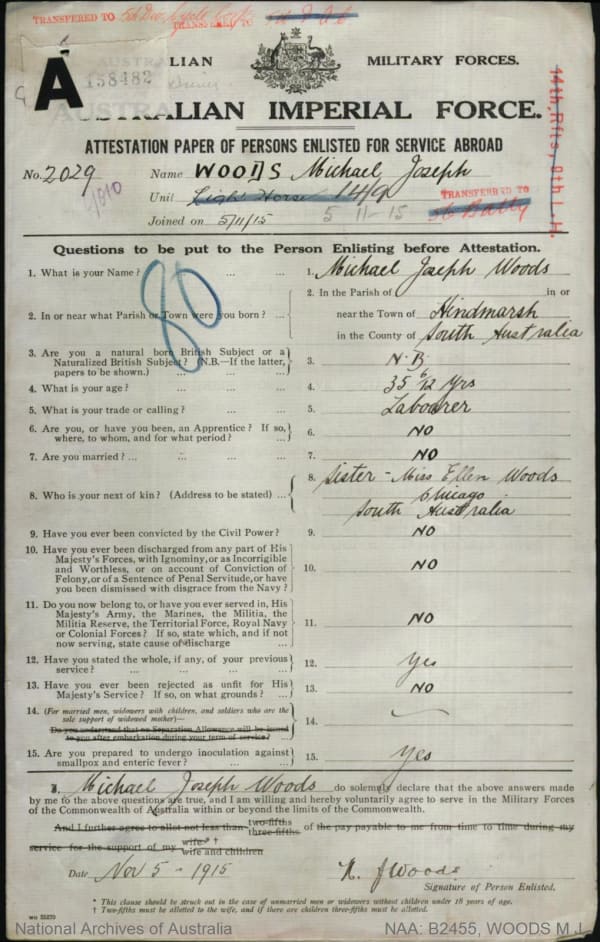 TRANSFERRED TO 5th Div. Cycle Corps
TRANSFERRED TO
A
AUSTRALIAN MILITARY FORCES.
158482
AUSTRALIAN IMPERIAL FORCE.
ATTESTATION PAPER OF PERSONS ENLISTED FOR SERVICE ABROAD
14th Rfts, 9th L.H.
No. 2029 Name WOODS Michael Joseph
Unit Light Horse 14/9
TRANSFERRED TO
Joined on 5/11/15 5 11-15
Questions to be put to the Person Enlisting before Attestation.
80
1. What is your Name? ... ... 1. Michael Joseph Woods
2. In or near what Parish or Town were you born? ... 2. In the Parish of in or
near the Town of Hindmarsh
in the County of South Australia
3. Are you a natural born British Subject or a
Naturalized British Subject? (N.B.—If the latter,
papers to be shown.) ... ... 3. N.B
4. What is your age? ... ... 4. 35 6/12 yrs
5. What is your trade or calling? ... ... 5. Labourer
6. Are you, or have you been, an Apprentice? If so,
where, to whom, and for what period? ... 6. NO
7. Are you married? ... ... ... 7. NO
8. Who is your next of kin? (Address to be stated) ... 8. Sister - Miss Ellen Woods
Chicago
South Australia
9. Have you ever been convicted by the Civil Power? 9. NO
10. Have you ever been discharged from any part of His
Majesty's Forces, with Ignominy, or as Incorrigible
and Worthless, or on account of Conviction of
Felony, or of a Sentence of Penal Servitude, or have
you been dismissed with disgrace from the Navy? 10. NO
11. Do you now belong to, or have you ever served in, His
Majesty's Army, the Marines, the Militia, the
Militia Reserve, the Territorial Force, Royal Navy
or Colonial Forces? If so, state which, and if not
now serving, state cause of discharge ... 11. NO
12. Have you stated the whole, if any, of your previous
service? ... ... ... ... 12. Yes
13. Have you ever been rejected as unfit for His
Majesty's Service? If so, on what grounds? ... 13. NO
14. (For married men, widowers with children, and soldiers who are the
sole support of widowed mother)—
Do you understand that no Separation Allowance will be issued
to you after embarkation during your term of service? 14.
15. Are you prepared to undergo inoculation against
smallpox and enteric fever? ... ... 15. Yes
I, Michael Joseph Woods do solemnly declare that the above answers made
by me to the above questions are true, and I am willing and hereby voluntarily agree to serve in the Military Forces
of the Commonwealth of Australia within or beyond the limits of the Commonwealth.
And I further agree to allot not less than two-fifths three-fifths of the pay payable to me from time to time during my
service for the support of my wife * † wife and children
Date Nov 5 - 1915 M. J Woods
Signature of Person Enlisted.
* This clause should be struck out in the case of unmarried men or widowers without children under 18 years of age.
† Two-fifths must be allotted to the wife, and if there are children three-fifths must be allotted.
National Archives of Australia NAA: B2455, WOODS M J